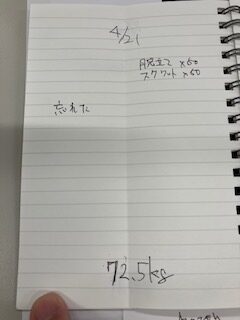 4/21
腕立て ×50
スクワット ×50
忘れた
72.5kg